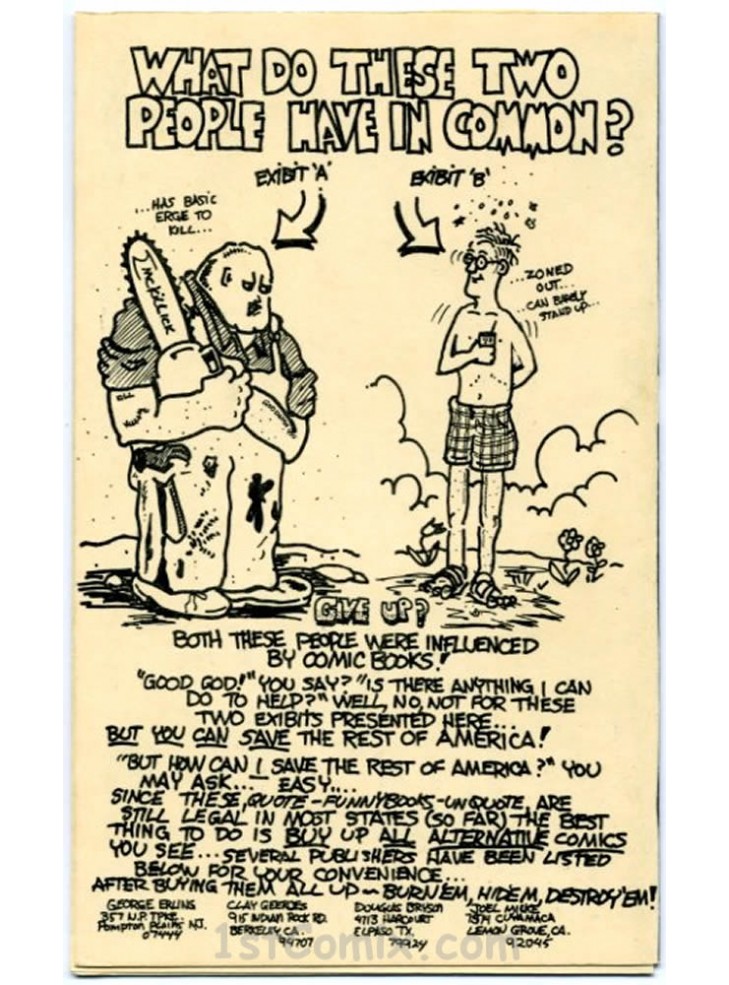 WHAT DO THESE TWO
PEOPLE HAVE IN COMMON?
EXIBIT 'A'
EXIBIT 'B'
...HAS BASIC
ERGE TO
KILL...
McKILLICK
KILL
...ZONED
OUT...
...CAN BARELY
STAND UP...
GIVE UP?
BOTH THESE PEOPLE WERE INFLUENCED
BY COMIC BOOKS!
"GOOD GOD!" YOU SAY? "IS THERE ANYTHING I CAN
DO TO HELP?" WELL, NO, NOT FOR THESE
TWO EXIBITS PRESENTED HERE...
BUT YOU CAN SAVE THE REST OF AMERICA!
"BUT HOW CAN I SAVE THE REST OF AMERICA?" YOU
MAY ASK... EASY....
SINCE THESE, QUOTE-FUNNYBOOKS-UNQUOTE, ARE
STILL LEGAL IN MOST STATES (SO FAR) THE BEST
THING TO DO IS BUY UP ALL ALTERNATIVE COMICS
YOU SEE... SEVERAL PUBLISHERS HAVE BEEN LISTED
BELOW FOR YOUR CONVENIENCE...
AFTER BUYING THEM ALL UP— BURN'EM, HIDE'M, DESTROY'EM!
GEORGE ERLING
357 N.P. TPKE.
POMPTON PLAINS NJ.
07444
CLAY GEERDES
915 INDIAN ROCK RD.
BERKELEY CA.
94707
DOUGLAS BRYSON
4713 HARCOURT
EL PASO TX.
79924
JOEL
1874 CUYAMACA
LEMON GROVE, CA.
92045
1stComix.com